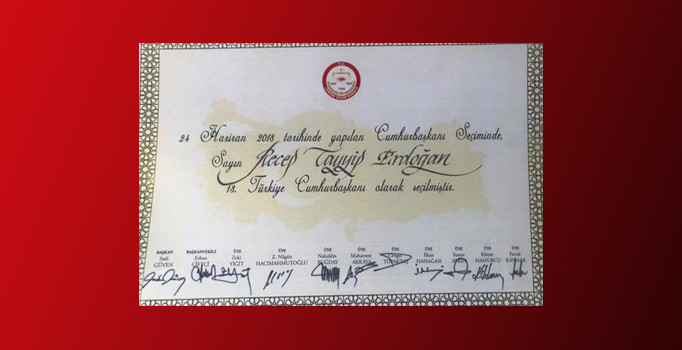 24 Haziran 2018 tarihinde yapılan Cumhurbaşkanı Seçiminde,
Sayın Recep Tayyip Erdoğan
13. Türkiye Cumhurbaşkanı olarak seçilmiştir.
BAŞKAN BAŞKANVEKİLİ ÜYE ÜYE ÜYE ÜYE ÜYE ÜYE ÜYE ÜYE ÜYE
Sadi Erhan Zeki Z. Nilgün Nakiddin Muharrem Cengiz İlhan Yunus Kürşat Faruk
GÜVEN ÇİFTÇİ YİĞİT HACIMAHMUTOĞLU BUĞDAY AKKAYA TOPAKTAŞ HANAĞASI HAMURCU KAYMAK